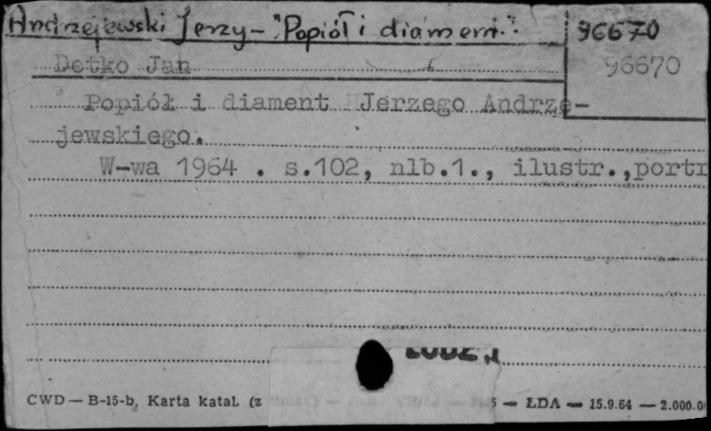 Andrzejewski Jerzy - "Popiół i diament".
96670
Detko Jan
96670
Popiół i diament Jerzego Andrze-
jewskiego.
W-wa 1964 . s.102, nlb.1., ilustr.,portr
CWD — B-15-b, Karta katal. (z
5 — ŁDA — 15.9.64 — 2.000.0